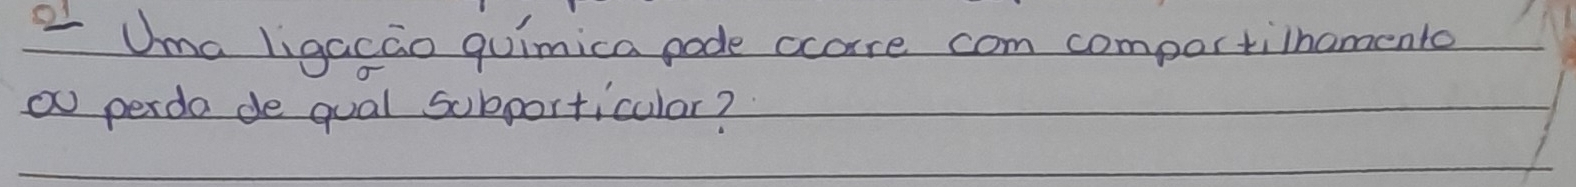 Uma ligação química pode ocorre com compartilhamento
ou perda de qual subpartícular?